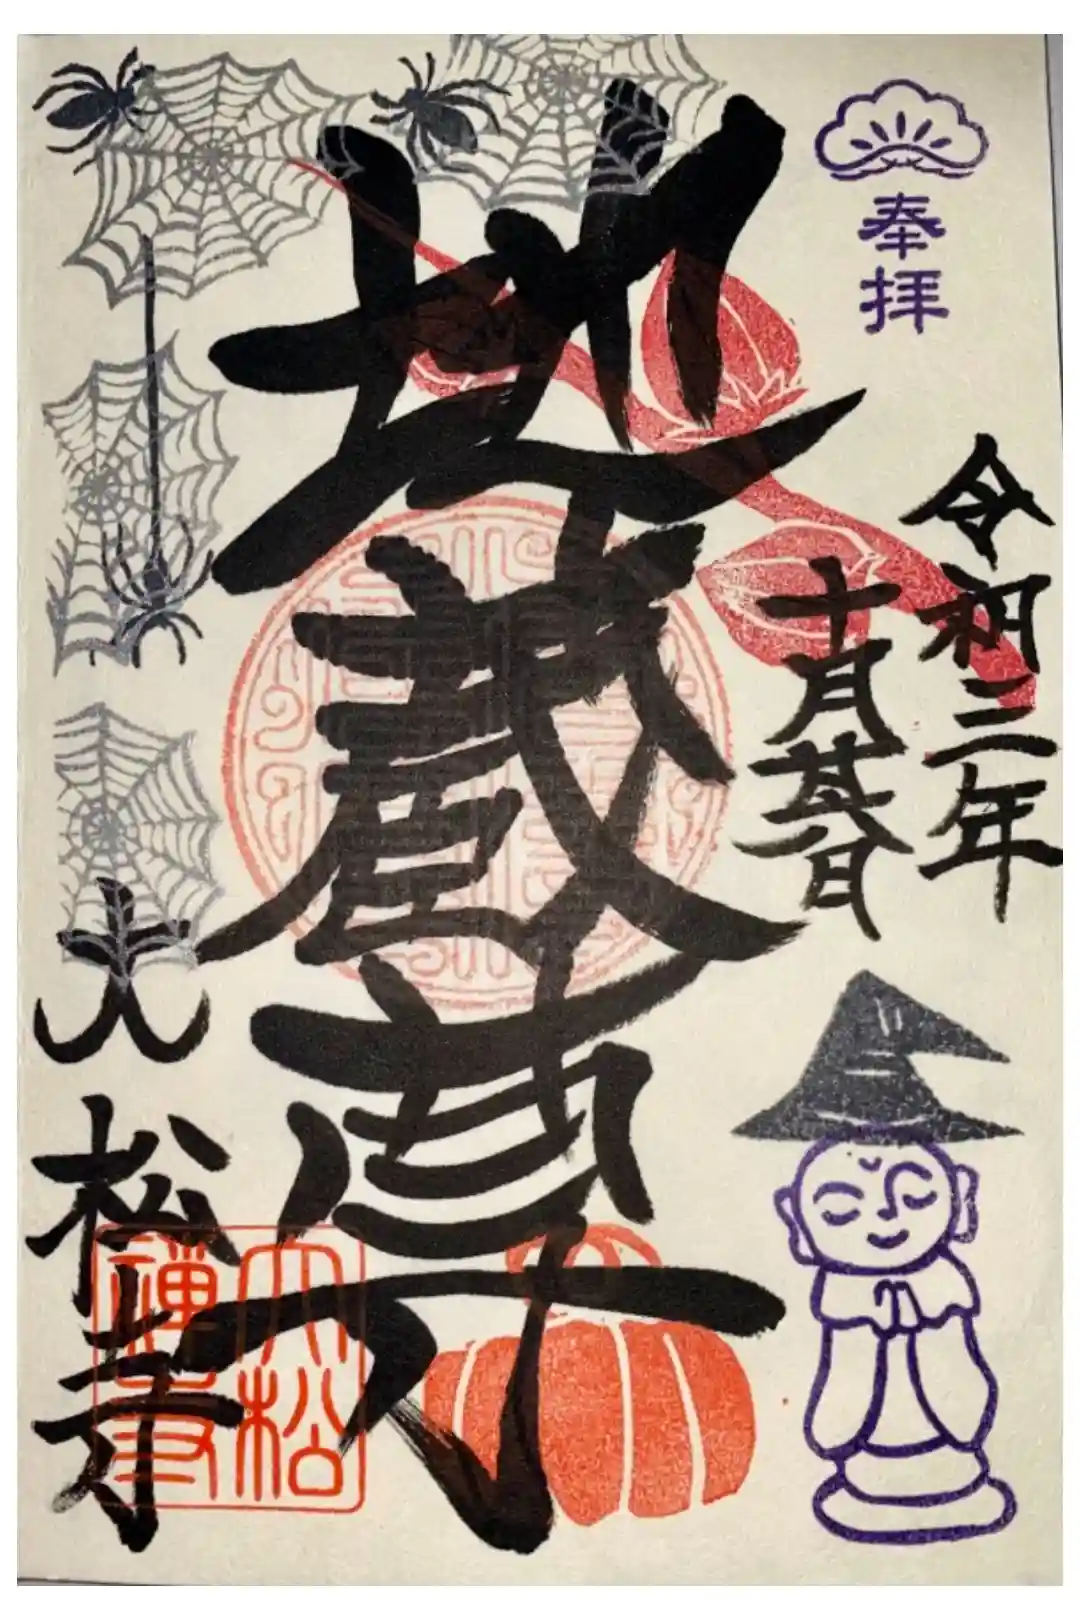 奉拝
令和二年
十月
地蔵尊
大松寺
大松
禪寺